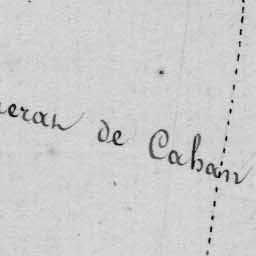 eran de Caban